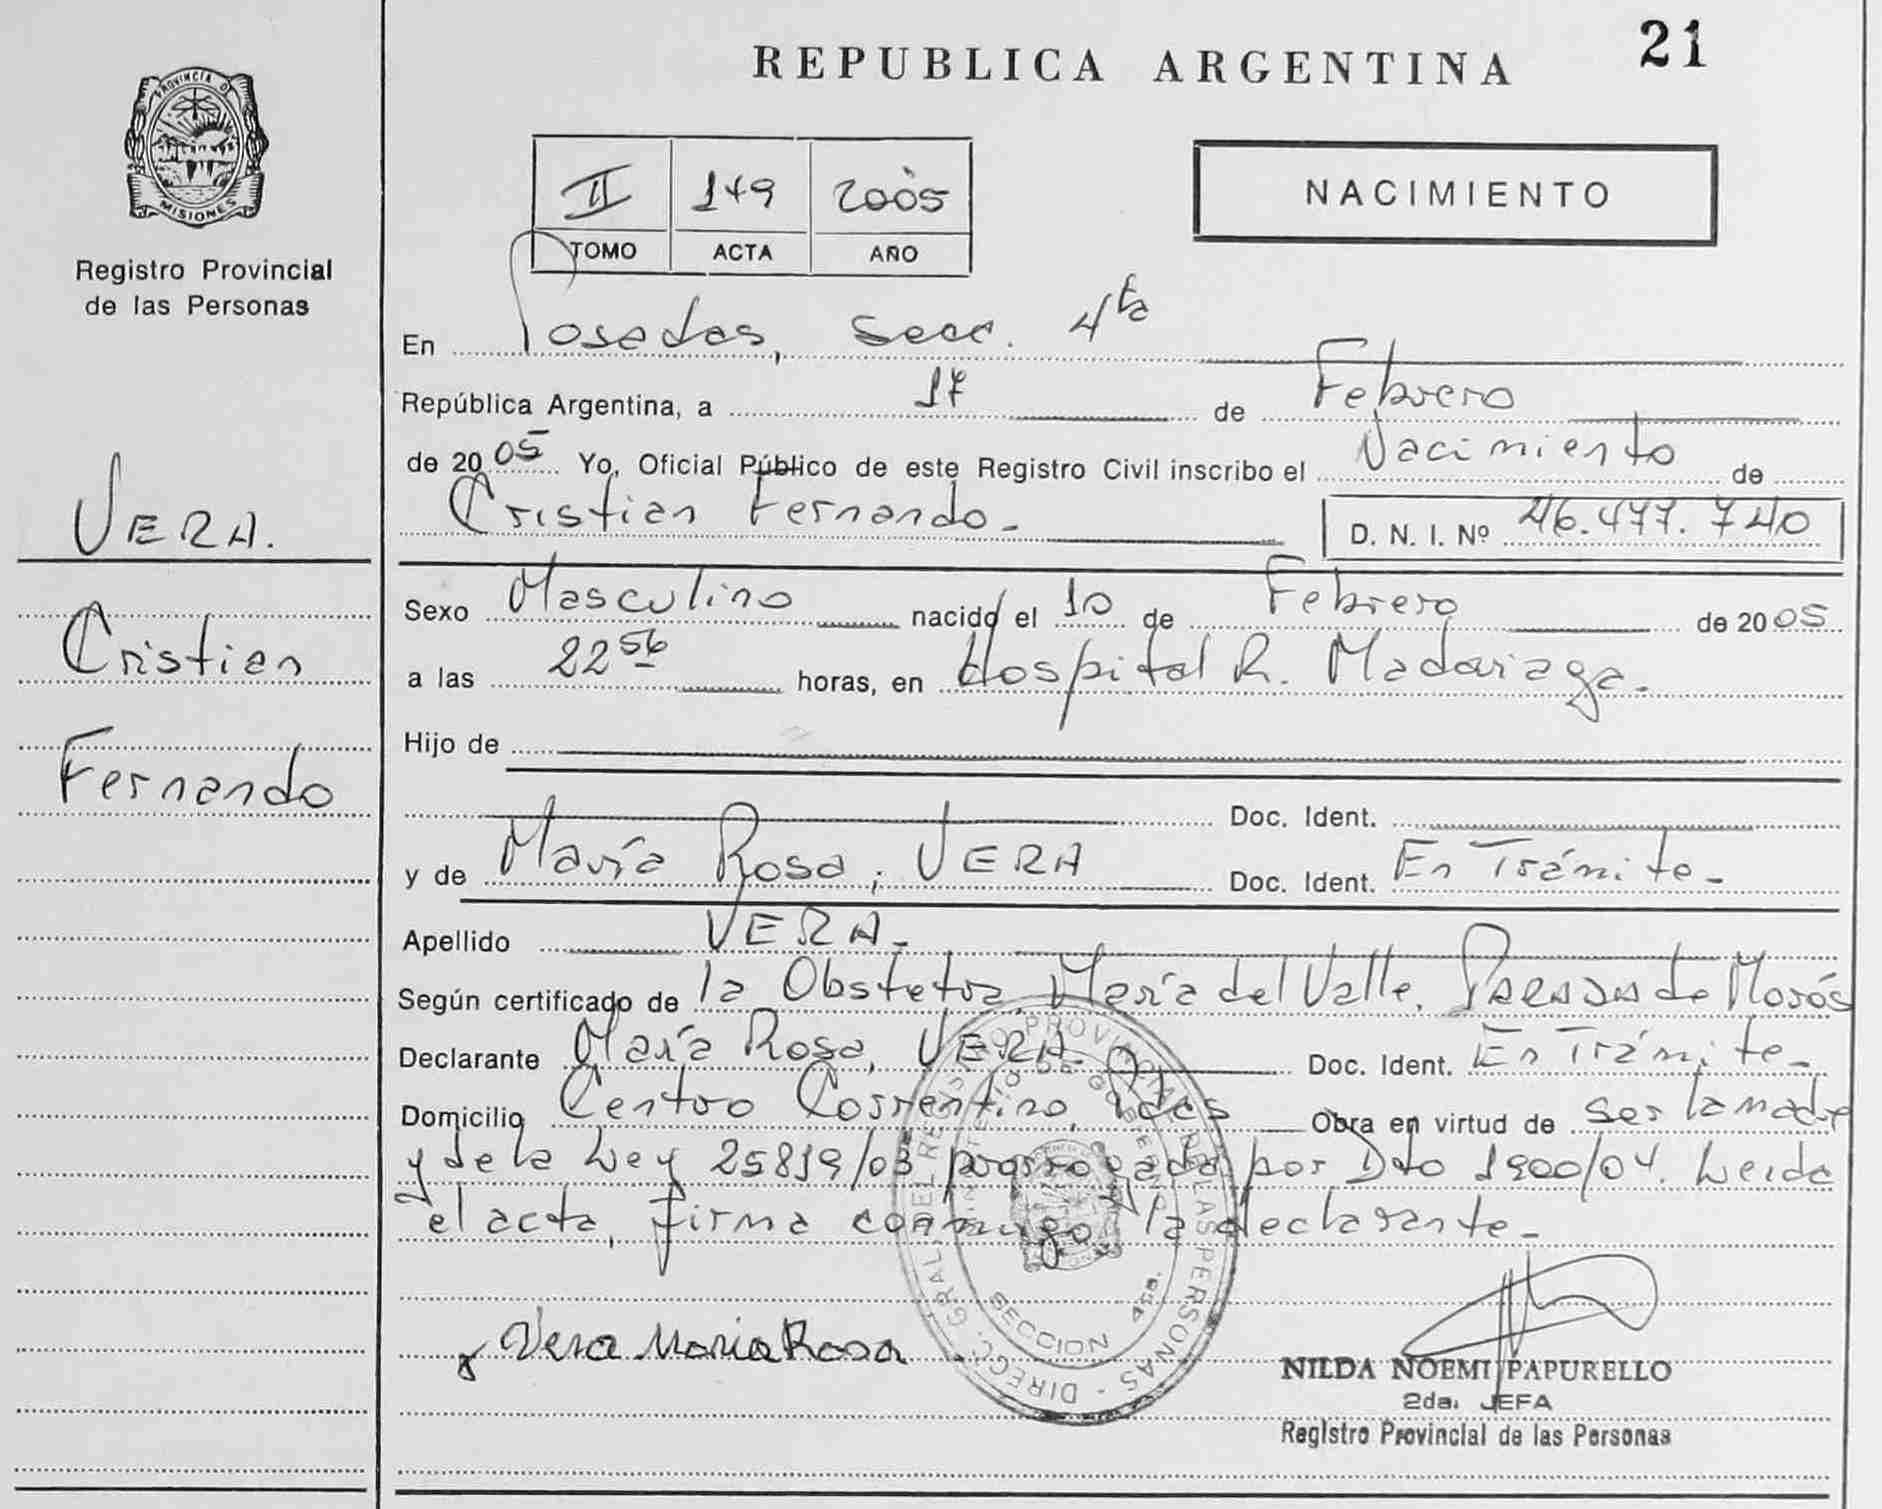 REPUBLICA ARGENTINA
21
PROVINCIA DE
MISIONES
Registro Provincial
de las Personas
II 149 2005
TOMO ACTA AÑO
NACIMIENTO
En Posadas, Secc. 4ta
República Argentina, a 17 de Febrero
de 2005 Yo, Oficial Público de este Registro Civil inscribo el Nacimiento de
Cristian Fernando.- D. N. I. Nº 46.477.740
VERA.
Cristian
Fernando
Sexo Masculino nacido el 10 de Febrero de 2005
a las 22 56 horas, en Hospital R. Madariaga.
Hijo de
Doc. Ident.
y de María Rosa, VERA Doc. Ident. En Trámite.-
Apellido VERA.-
Según certificado de la Obstetra María del Valle, de Morós
Declarante María Rosa, VERA. Doc. Ident. En Trámite.-
Domicilio Centro Correntino, Pdas Obra en virtud de ser la madre
y de la Ley 25819/03 prorrogada por Dto 1900/04. Leida
el acta, firma conmigo la declarante.-
Vera Maria Rosa
DIRECC. GRAL. DEL REGISTRO PROVINCIAL DE LAS PERSONAS
MINISTERIO DE GOBIERNO
SECCION 4ta.
NILDA NOEMI PAPURELLO
2da. JEFA
Registro Provincial de las Personas